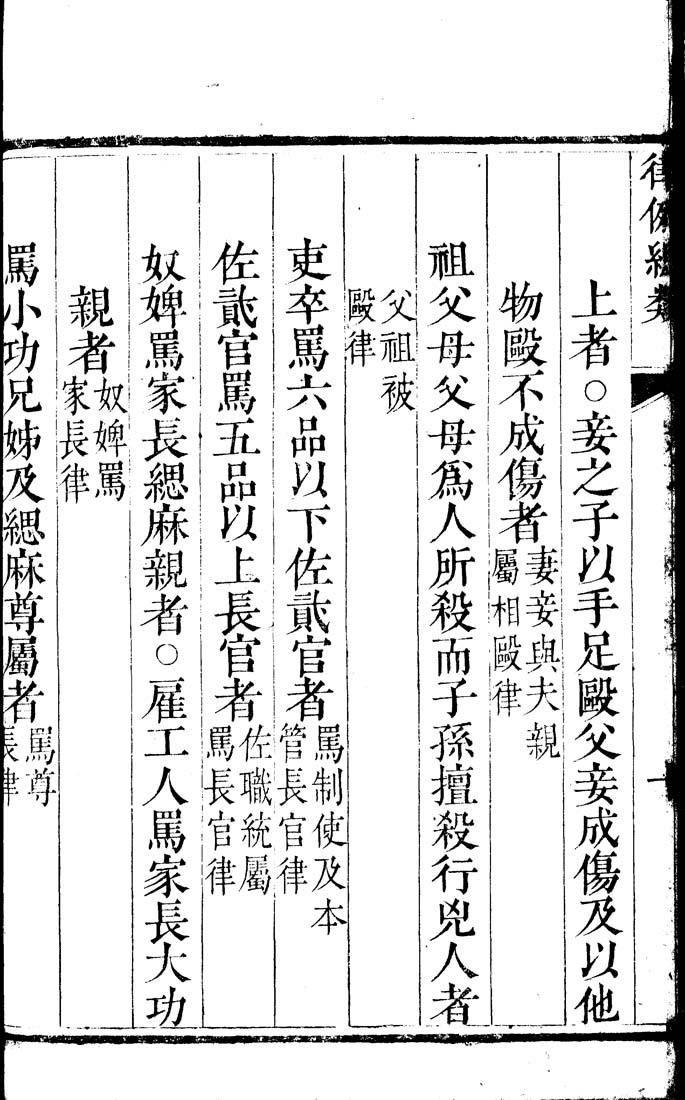 律例總類
上者○妾之子以手足毆父妾成傷及以他
物毆不成傷者妻妾與夫親
屬相毆律
祖父母父母爲人所殺而子孫擅殺行兇人者
父祖被
毆律
吏卒罵六品以下佐貳官者罵制使及本
管長官律
佐貳官罵五品以上長官者佐職統屬
罵長官律
奴婢罵家長緦麻親者○雇工人罵家長大功
親者奴婢罵
家長律
罵小功兄姊及緦麻尊屬者罵尊
長律